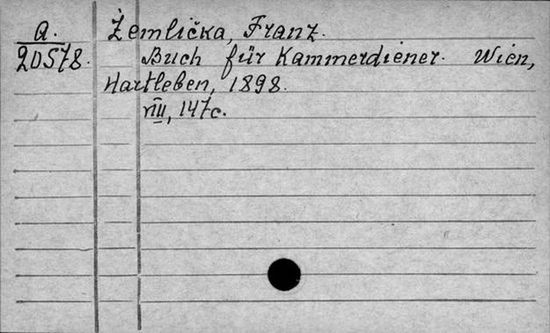 a. Žemlička, Franz.
20578. Buch für Kammerdiener. Wien,
Hartleben, 1898.
VIII, 147c.